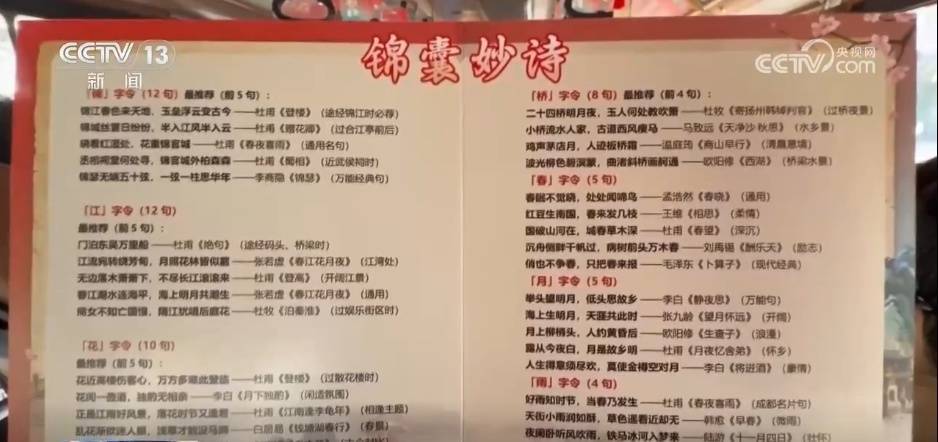 CCTV 13
新闻
央视网
CCTV.com
锦囊妙诗
「锦」字令（12 句）最推荐（前 5 句）：
锦江春色来天地，玉垒浮云变古今——杜甫《登楼》（途经锦江时必荐）
锦城丝管日纷纷，半入江风半入云——杜甫《赠花卿》（过合江亭前后）
晓看红湿处，花重锦官城——杜甫《春夜喜雨》（通用名句）
丞相祠堂何处寻，锦官城外柏森森——杜甫《蜀相》（近武侯祠时）
锦瑟无端五十弦，一弦一柱思华年——李商隐《锦瑟》（万能经典句）
「江」字令（12 句）
最推荐（前 5 句）：
门泊东吴万里船——杜甫《绝句》（途经码头、桥梁时）
江流宛转绕芳甸，月照花林皆似霰——张若虚《春江花月夜》（江湾处）
无边落木萧萧下，不尽长江滚滚来——杜甫《登高》（开阔江景）
春江潮水连海平，海上明月共潮生——张若虚《春江花月夜》（通用）
商女不知亡国恨，隔江犹唱后庭花——杜牧《泊秦淮》（过娱乐街区时）
「花」字令（10 句）
最推荐（前 5 句）：
花近高楼伤客心，万方多难此登临——杜甫《登楼》（过散花楼时）
花间一壶酒，独酌无相亲——李白《月下独酌》（闲适氛围）
正是江南好风景，落花时节又逢君——杜甫《江南逢李龟年》（相逢主题）
乱花渐欲迷人眼，浅草才能没马蹄——白居易《钱塘湖春行》（春景）
「桥」字令（8 句）最推荐（前 4 句）：
二十四桥明月夜，玉人何处教吹箫——杜牧《寄扬州韩绰判官》（过桥夜景）
小桥流水人家，古道西风瘦马——马致远《天净沙·秋思》（水乡景）
鸡声茅店月，人迹板桥霜——温庭筠《商山早行》（清晨意境）
波光柳色碧溟蒙，曲渚斜桥画舸通——欧阳修《西湖》（桥梁水景）
「春」字令（5 句）
春眠不觉晓，处处闻啼鸟——孟浩然《春晓》（通用）
红豆生南国，春来发几枝——王维《相思》（柔情）
国破山河在，城春草木深——杜甫《春望》（深沉）
沉舟侧畔千帆过，病树前头万木春——刘禹锡《酬乐天》（励志）
俏也不争春，只把春来报——毛泽东《卜算子》（现代经典）
「月」字令（5 句）
举头望明月，低头思故乡——李白《静夜思》（万能句）
海上生明月，天涯共此时——张九龄《望月怀远》（开阔）
月上柳梢头，人约黄昏后——欧阳修《生查子》（浪漫）
露从今夜白，月是故乡明——杜甫《月夜忆舍弟》（怀乡）
人生得意须尽欢，莫使金樽空对月——李白《将进酒》（豪情）
「雨」字令（4 句）
好雨知时节，当春乃发生——杜甫《春夜喜雨》（成都名片句）
天街小雨润如酥，草色遥看近却无——韩愈《早春》（微雨）
夜阑卧听风吹雨，铁马冰河入梦来——陆游《十一月四日》（壮怀）